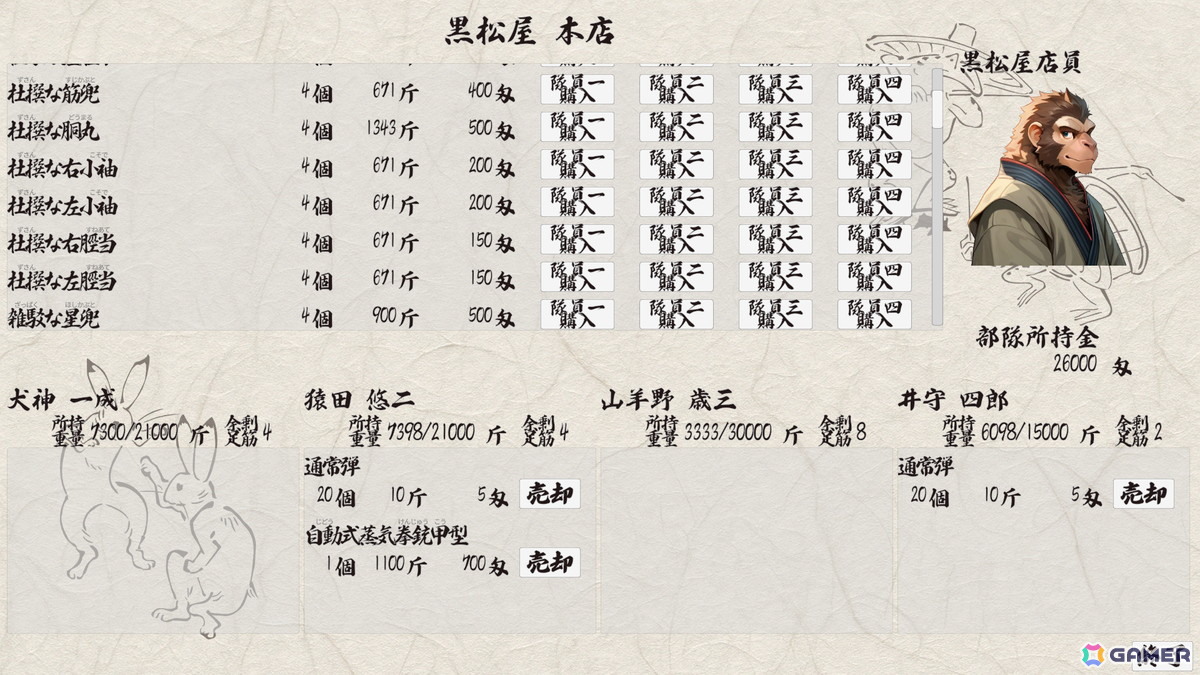 黒松屋 本店
黒松屋店員
ずさん すじかぶと
杜撰な筋兜 4個 671斤 400匁 隊員一購入 隊員二購入 隊員三購入 隊員四購入
ずさん どうまる
杜撰な胴丸 4個 1343斤 500匁 隊員一購入 隊員二購入 隊員三購入 隊員四購入
ずさん こそで
杜撰な右小袖 4個 671斤 200匁 隊員一購入 隊員二購入 隊員三購入 隊員四購入
ずさん こそで
杜撰な左小袖 4個 671斤 200匁 隊員一購入 隊員二購入 隊員三購入 隊員四購入
ずさん すねあて
杜撰な右脛当 4個 671斤 150匁 隊員一購入 隊員二購入 隊員三購入 隊員四購入
ずさん すねあて
杜撰な左脛当 4個 671斤 150匁 隊員一購入 隊員二購入 隊員三購入 隊員四購入
ざっぱく ほしかぶと
雑駁な星兜 4個 900斤 500匁 隊員一購入 隊員二購入 隊員三購入 隊員四購入
部隊所持金
26000 匁
犬神 一成 猿田 悠二 山羊野 歳三 井守 四郎
所持重量 7300/21000 斤 余剰足筋 4 所持重量 7398/21000 斤 余剰足筋 4 所持重量 3333/30000 斤 余剰足筋 8 所持重量 6098/15000 斤 余剰足筋 2
通常弾 通常弾
20個 10斤 5匁 売却 20個 10斤 5匁 売却
じどう けんじゅう こう
自動式蒸気拳銃甲型
1個 1100斤 700匁 売却
終了
GAMER